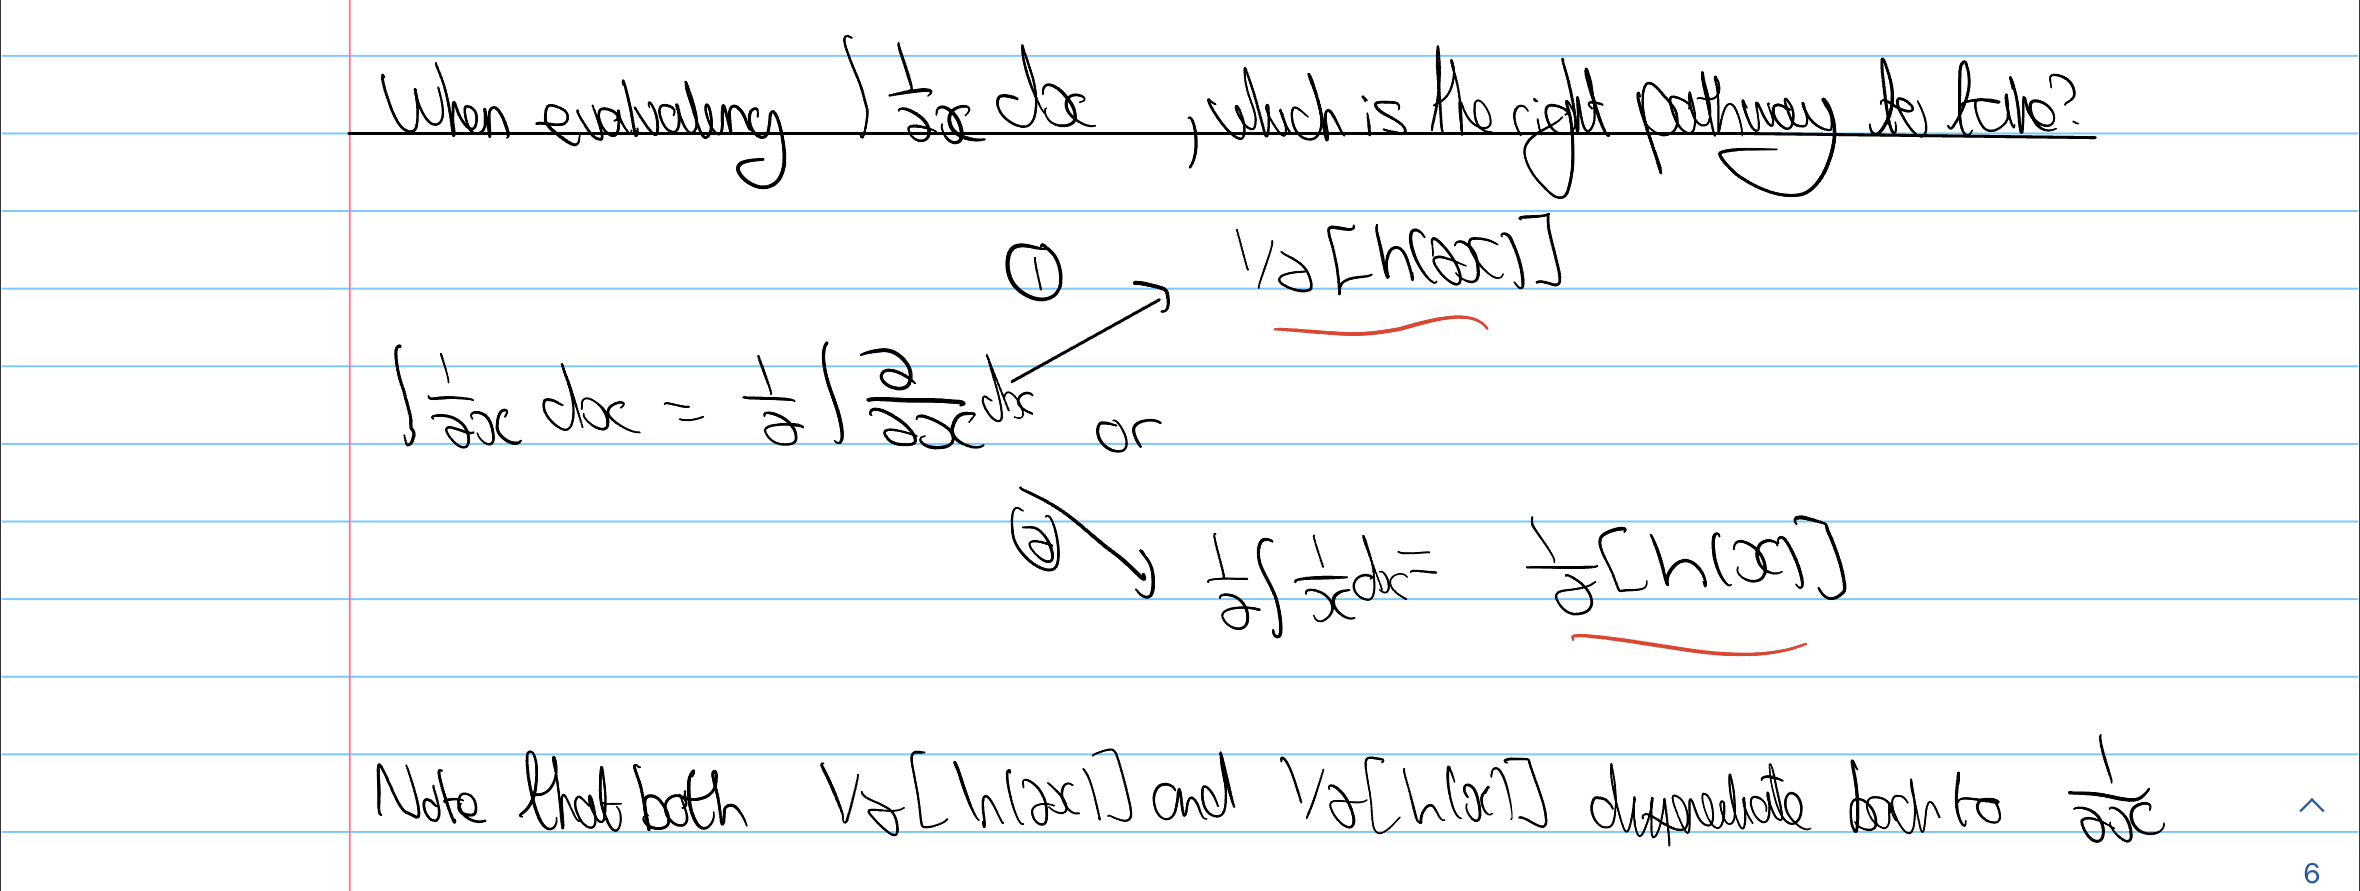 When evaluating ∫ 1/2x dx , which is the right pathway to take?
① 1/2 [ln(2x)]
∫ 1/2x dx = 1/2 ∫ 2/2x dx or
② 1/2 ∫ 1/x dx = 1/2 [ln(x)]
Note that both 1/2 [ln(2x)] and 1/2 [ln(x)] differentiate back to 1/2x
6